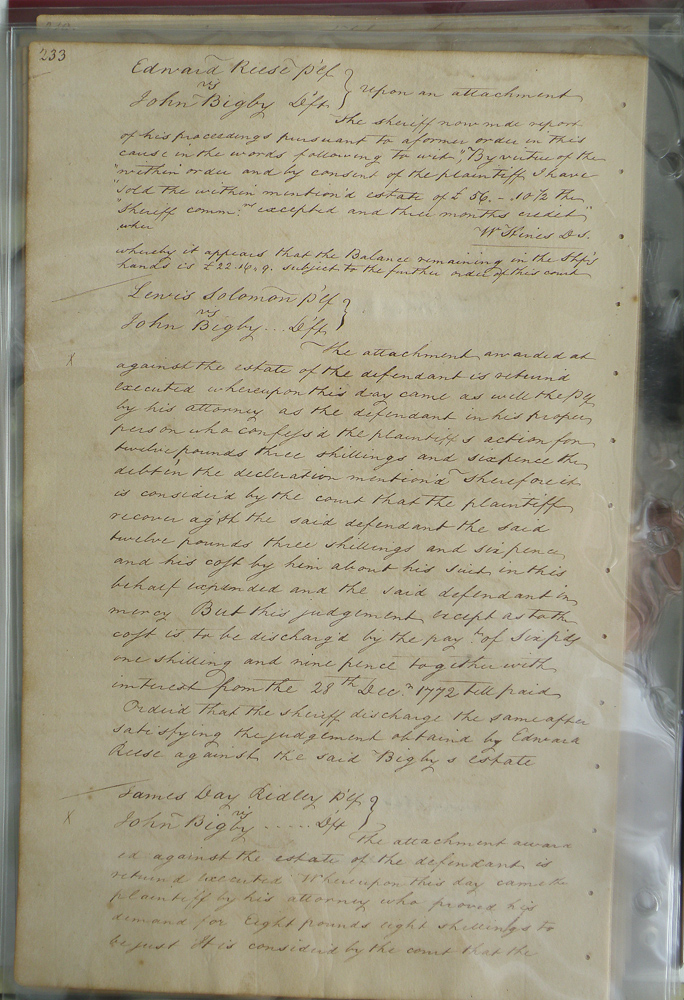 233
Edward Reese Plf
vs
John Bigby Dft } upon an attachment
The sheriff now made report
of his proceedings pursuant to aformer order in this
cause in the words following to wit, "By virtue of the
"within order and by consent of the plaintiff I have
"sold the within mention'd estate of £ 56. - .10½ the
"Sheriff comm.ns excepted and three months credit"
"wher W Hines D S.
whereby it appears that the Balance remaining in the Shf's
hands is £22.16.9. subject to the further order of this court
Lewis Solomon Plf
vs
John Bigby... Dft }
The attachment awarded at
x
against the estate of the defendant is return'd
executed whereupon this day came as well the Plf
by his attorney as the defendant in his proper
person who confess'd the plaintiff s action for
twelve pounds three shillings and sixpence the
debt in the declaration mention'd Therefore it
is consider'd by the court that the plaintiff
recover ag'st the said defendant the said
twelve pounds three shillings and six pence
and his cost by him about his suit in this
behalf expended and the said defendant in
mercy But this judgement except as to the
cost is to be discharg'd by the pay.t of Six pds
one shilling and nine pence together with
interest from the 28th Dec.r 1772 till paid
Order'd that the sheriff discharge the same after
satisfying the judgement obtain'd by Edward
Reese against the said Bigby s estate
James Day Ridley Plf
vs
x
John Bigby ..... Dft }
The attachment award
ed against the estate of the defendant is
return'd executed Whereupon this day came the
plaintiff by his attorney who proved his
demand for Eight pounds eight shillings to
be just It is consider'd by the court that the